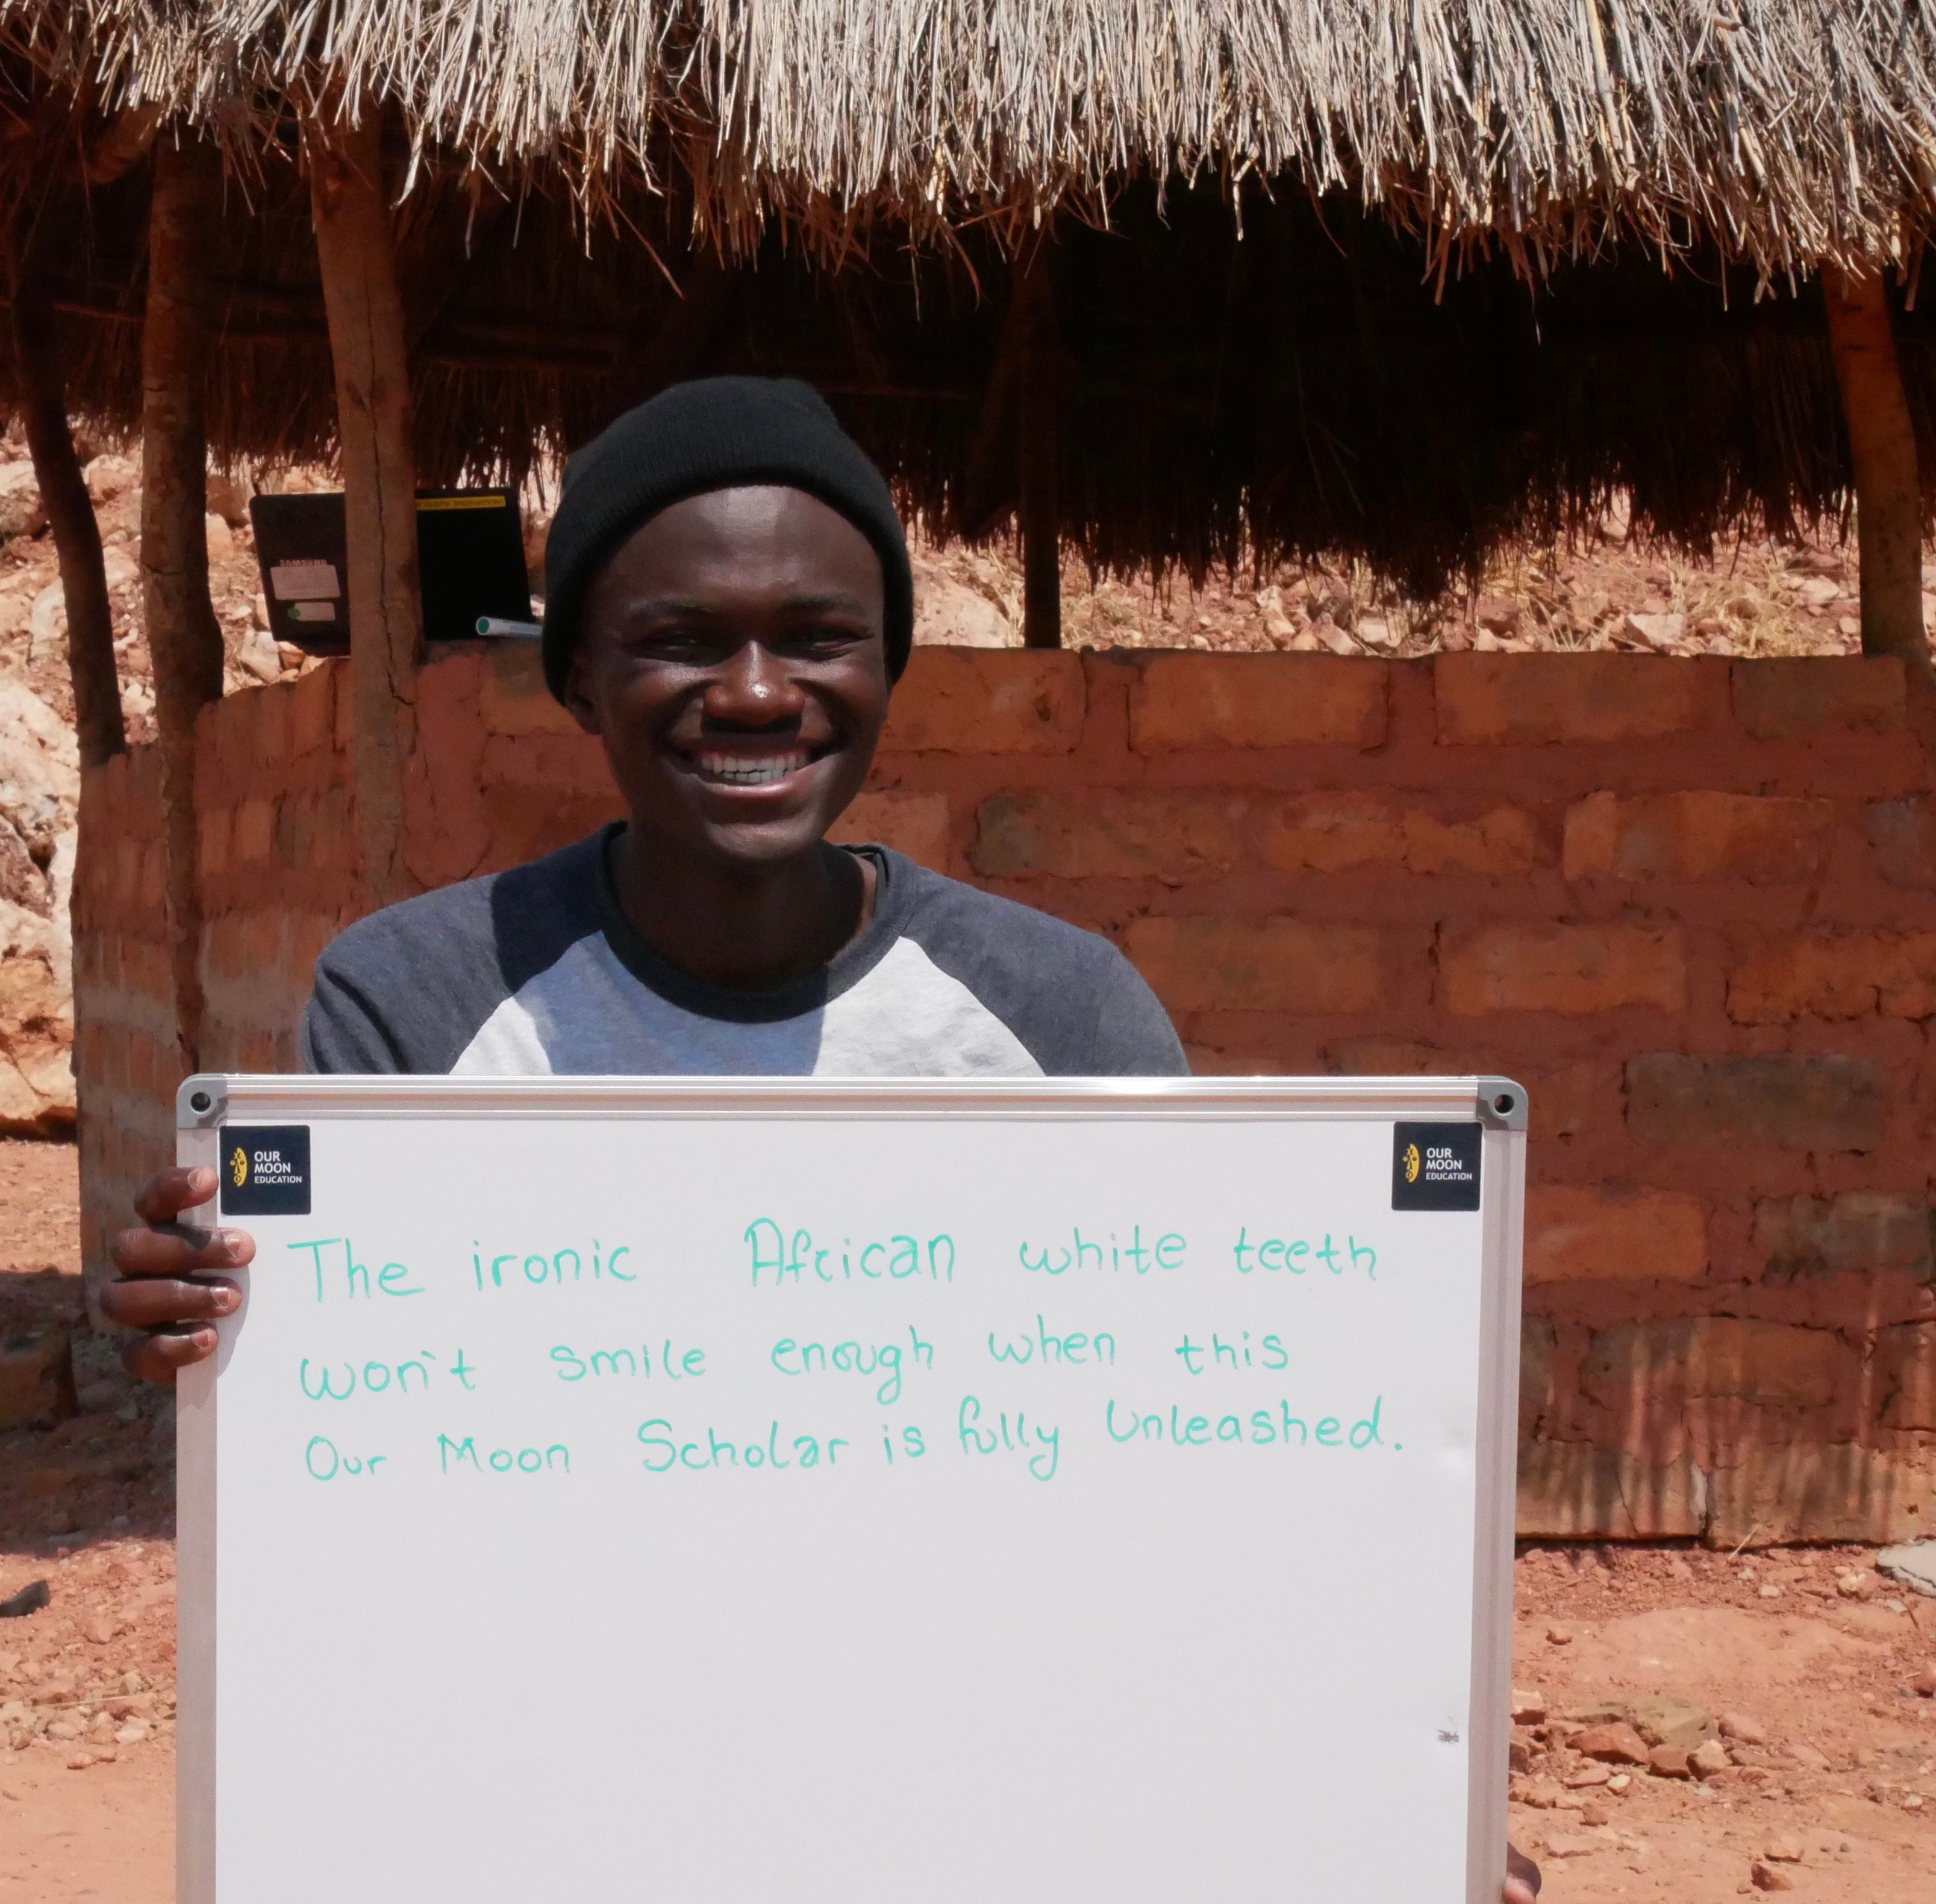 SAMSUNG
OUR
MOON
EDUCATION
OUR
MOON
EDUCATION
The ironic African white teeth
won't smile enough when this
Our Moon Scholar is fully Unleashed.